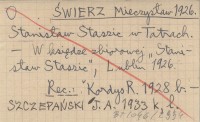 ŚWIERZ Mieczysław 1926.
Stanisław Staszic w Tatrach.
- W księdze zbiorowej „Stani-
sław Staszic", Lublin, 1926.
Rec.: Kordys R. 1928 b. -
SZCZEPAŃSKI J.A. 1933 k. l.